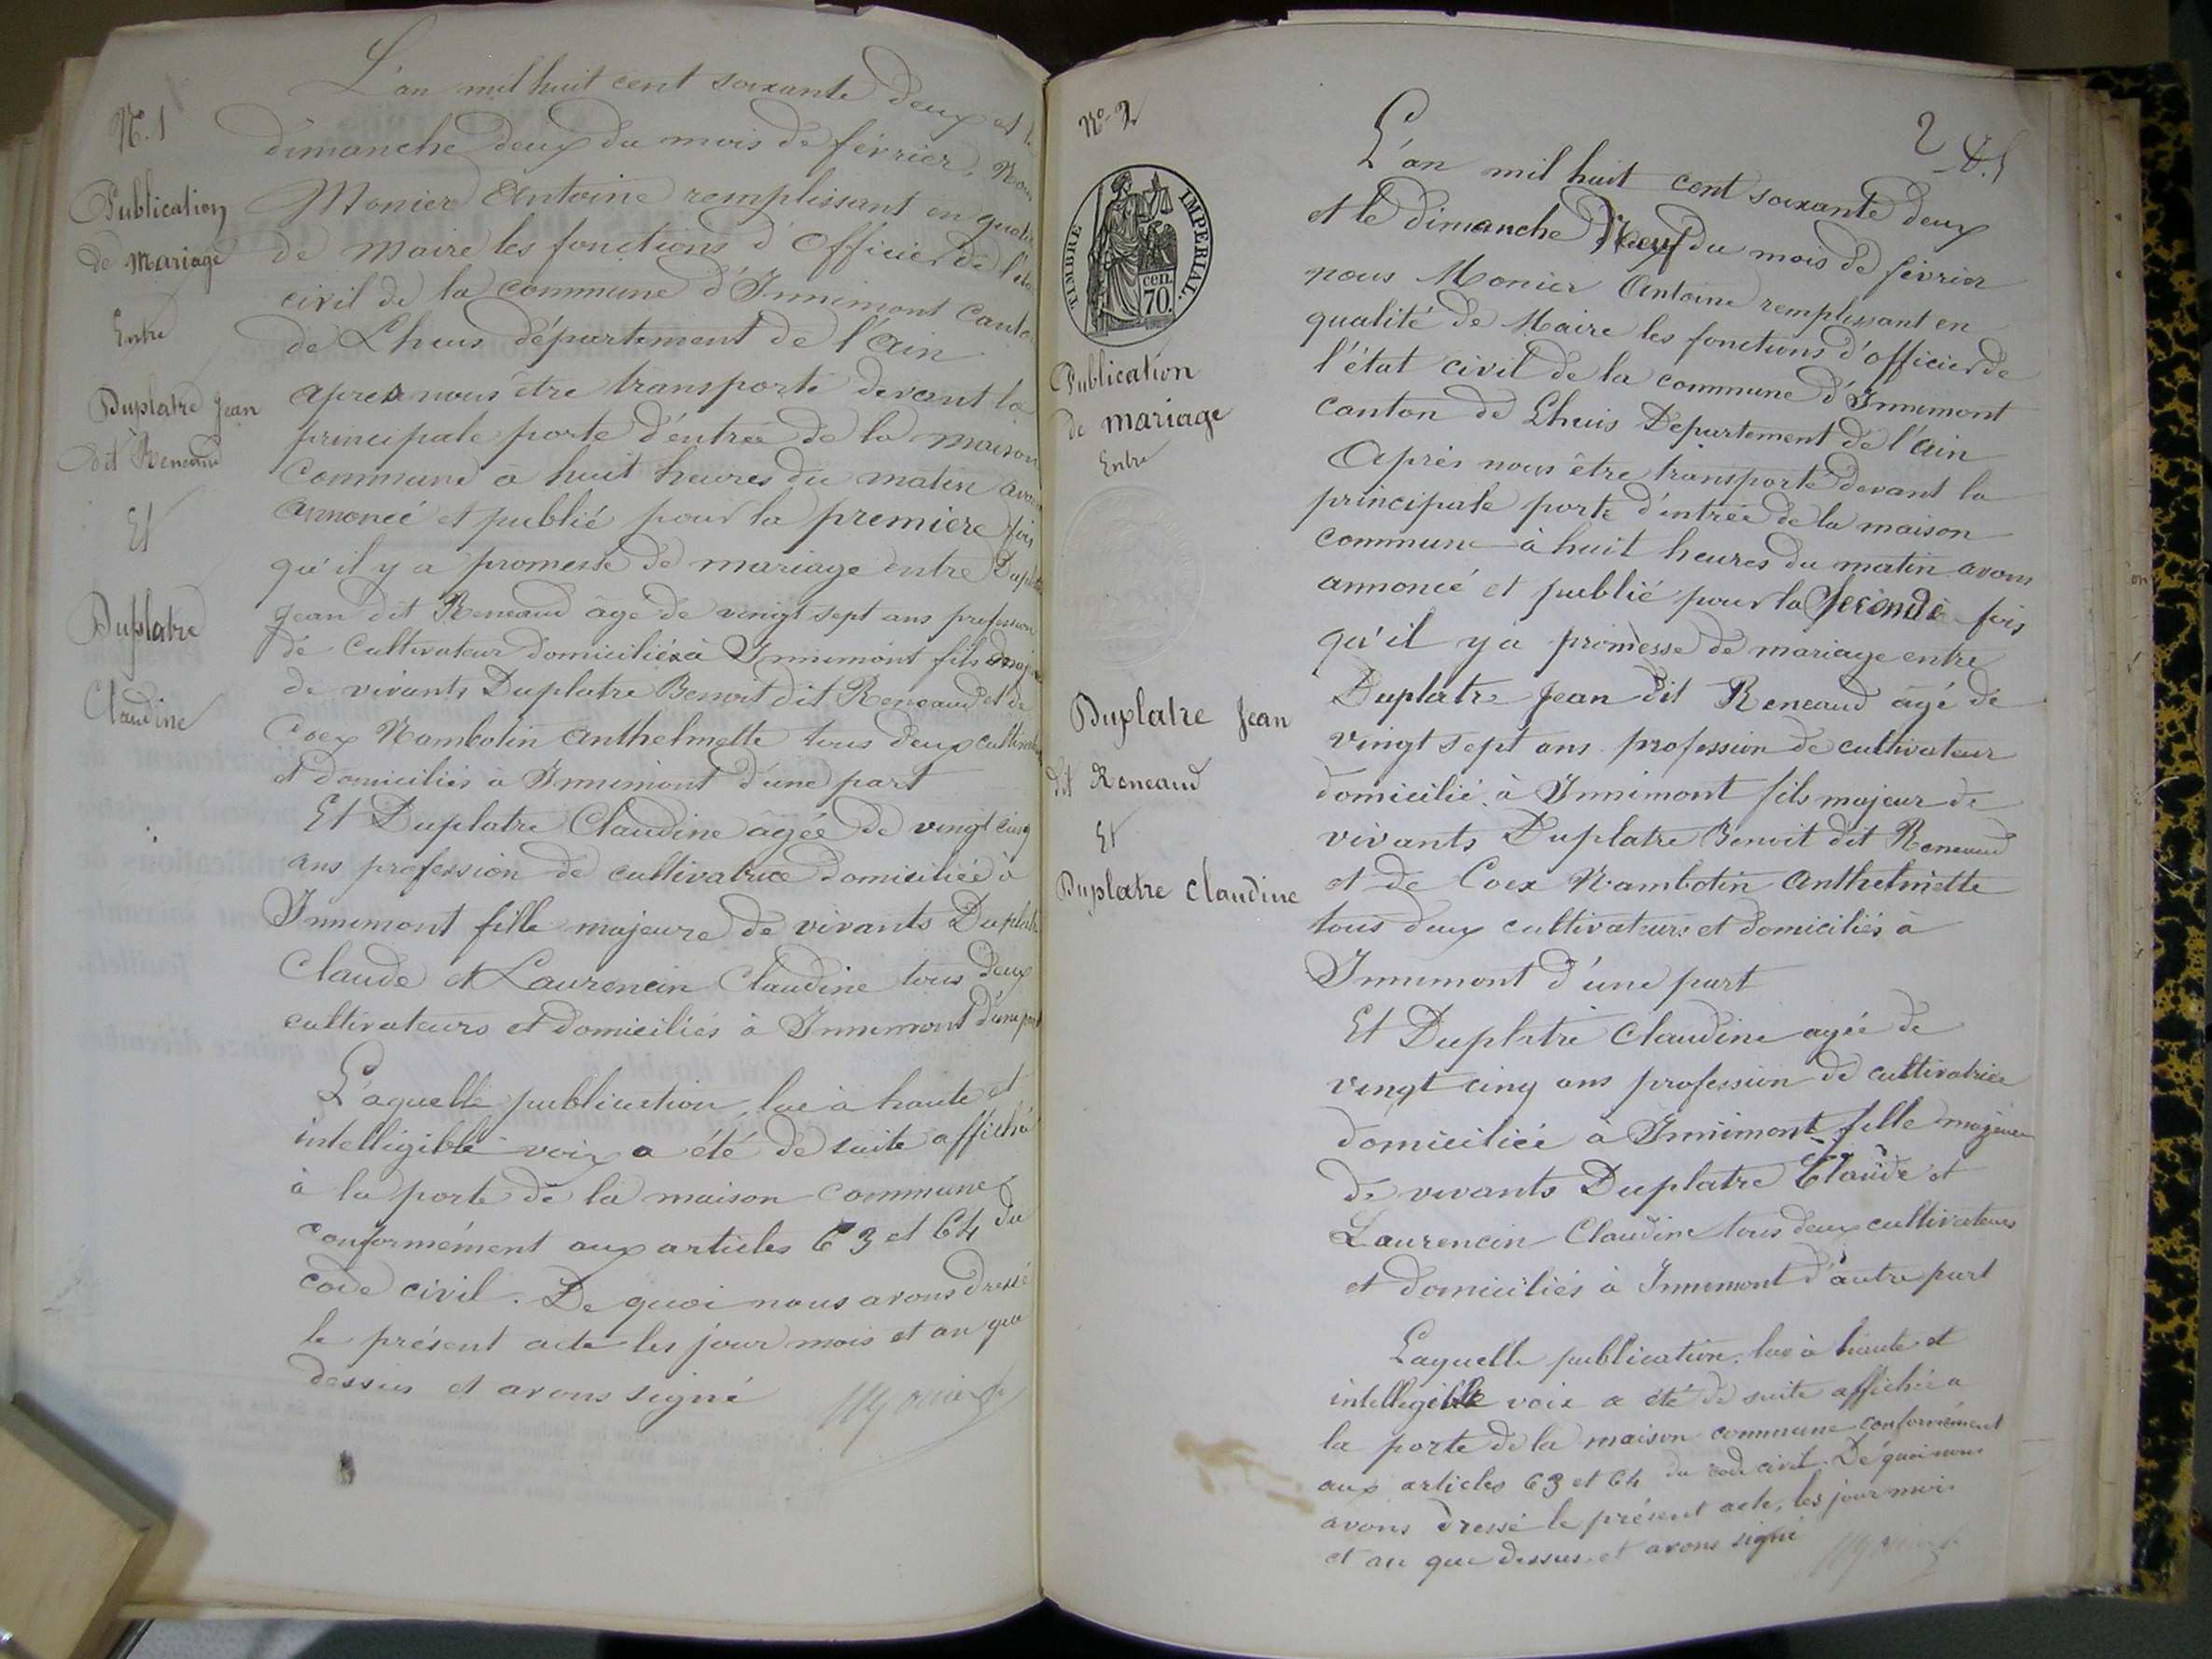 N. 1
Publication
de Mariage
Entre
Duplatre Jean
dit Reneaud
Et
Duplatre
Claudine
L'an mil huit cent soixante deux et le
dimanche deux du mois de février, Nous
Monier Antoine remplissant en qualité
de Maire les fonctions d'Officier de l'état
civil de la commune d'Innimont canton
de Lhuis département de l'Ain
après nous être transporté devant la
principale porte d'entrée de la maison
commune à huit heures du matin avons
annoncé et publié pour la premiere fois
qu'il y a promesse de mariage entre Duplatre
Jean dit Reneaud âgé de vingt sept ans profession
de cultivateur domicilié à Innimont fils majeur
de vivants Duplatre Benoit dit Reneaud et de
Coex Nambotin Anthelmette tous deux cultivateurs
et domiciliés à Innimont d'une part
Et Duplatre Claudine âgée de vingt cinq
ans profession de cultivatrice domiciliée à
Innimont fille majeure de vivants Duplatre
Claude et Laurencin Claudine tous deux
cultivateurs et domiciliés à Innimont d'une part
Laquelle publication, lue à haute et
intelligible voix a été de suite affiché
à la porte de la maison commune
conformément aux articles 63 et 64 du
code civil. De quoi nous avons dressé
le présent acte les jour mois et an que
dessus et avons signé Monier
No. 2
TIMBRE IMPERIAL.
cen.
70.
Publication
de mariage
Entre
Duplatre Jean
dit Reneaud
Et
Duplatre Claudine
2
L'an mil huit cent soixante deux
et le dimanche Neuf du mois de février
nous Monier Antoine remplissant en
qualité de Maire les fonctions d'officier de
l'état civil de la commune d'Innimont
canton de Lhuis Département de l'Ain
Après nous être transporté devant la
principale porte d'entrée de la maison
commune à huit heures du matin avons
annoncé et publié pour la seconde fois
qu'il y a promesse de mariage entre
Duplatre Jean dit Reneaud âgé de
vingt sept ans profession de cultivateur
domicilié à Innimont fils majeur de
vivants Duplatre Benoit dit Reneaud
et de Coex Nambotin Anthelmette
tous deux cultivateurs et domiciliés à
Innimont d'une part
Et Duplatre Claudine agée de
vingt cinq ans profession de cultivatrice
domiciliée à Innimont fille majeure
de vivants Duplatre Claude et
Laurencin Claudine tous deux cultivateurs
et domiciliés à Innimont d'autre part
Laquelle publication, lue à haute et
intelligible voix a été de suite affichée a
la porte de la maison commune conformément
aux articles 63 et 64 du code civil. De quoi nous
avons dressé le présent acte, les jour mois
et an que dessus et avons signé Monier